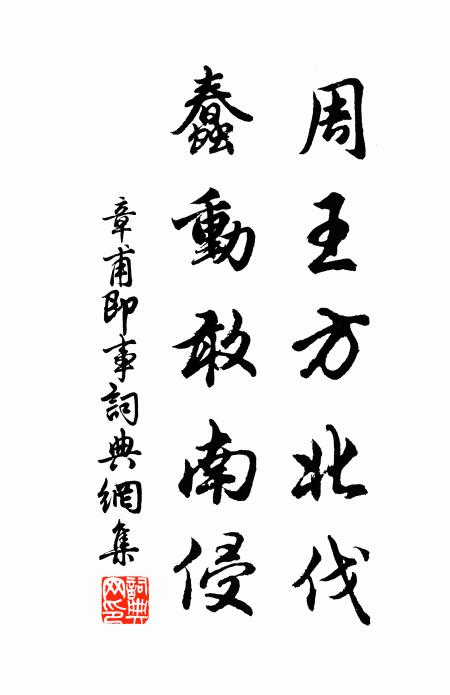 周王方北伐
蠢動敢南侵
章甫即事詞典網集
詞典網印